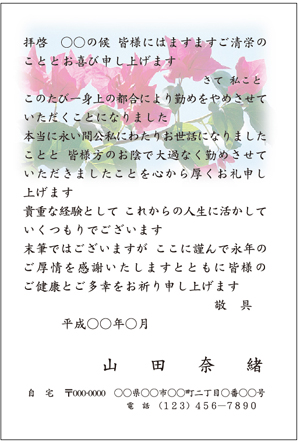 拝啓　〇〇の候 皆様にはますますご清栄の
こととお喜び申し上げます
さて 私こと
このたび一身上の都合により勤めをやめさせて
いただくことになりました
本当に永い間公私にわたりお世話になりました
ことと 皆様方のお陰で大過なく勤めさせて
いただきましたことを心から厚くお礼申し
上げます
貴重な経験として これからの人生に活かして
いくつもりでございます
末筆ではございますが ここに謹んで永年の
ご厚情を感謝いたしますとともに皆様の
ご健康とご多幸をお祈り申し上げます
敬　具
平成〇〇年〇月
山　田　奈　緒
自　宅　〒000-0000　〇〇県〇〇市〇〇町二丁目〇番〇〇号
電　話　(123)456-7890